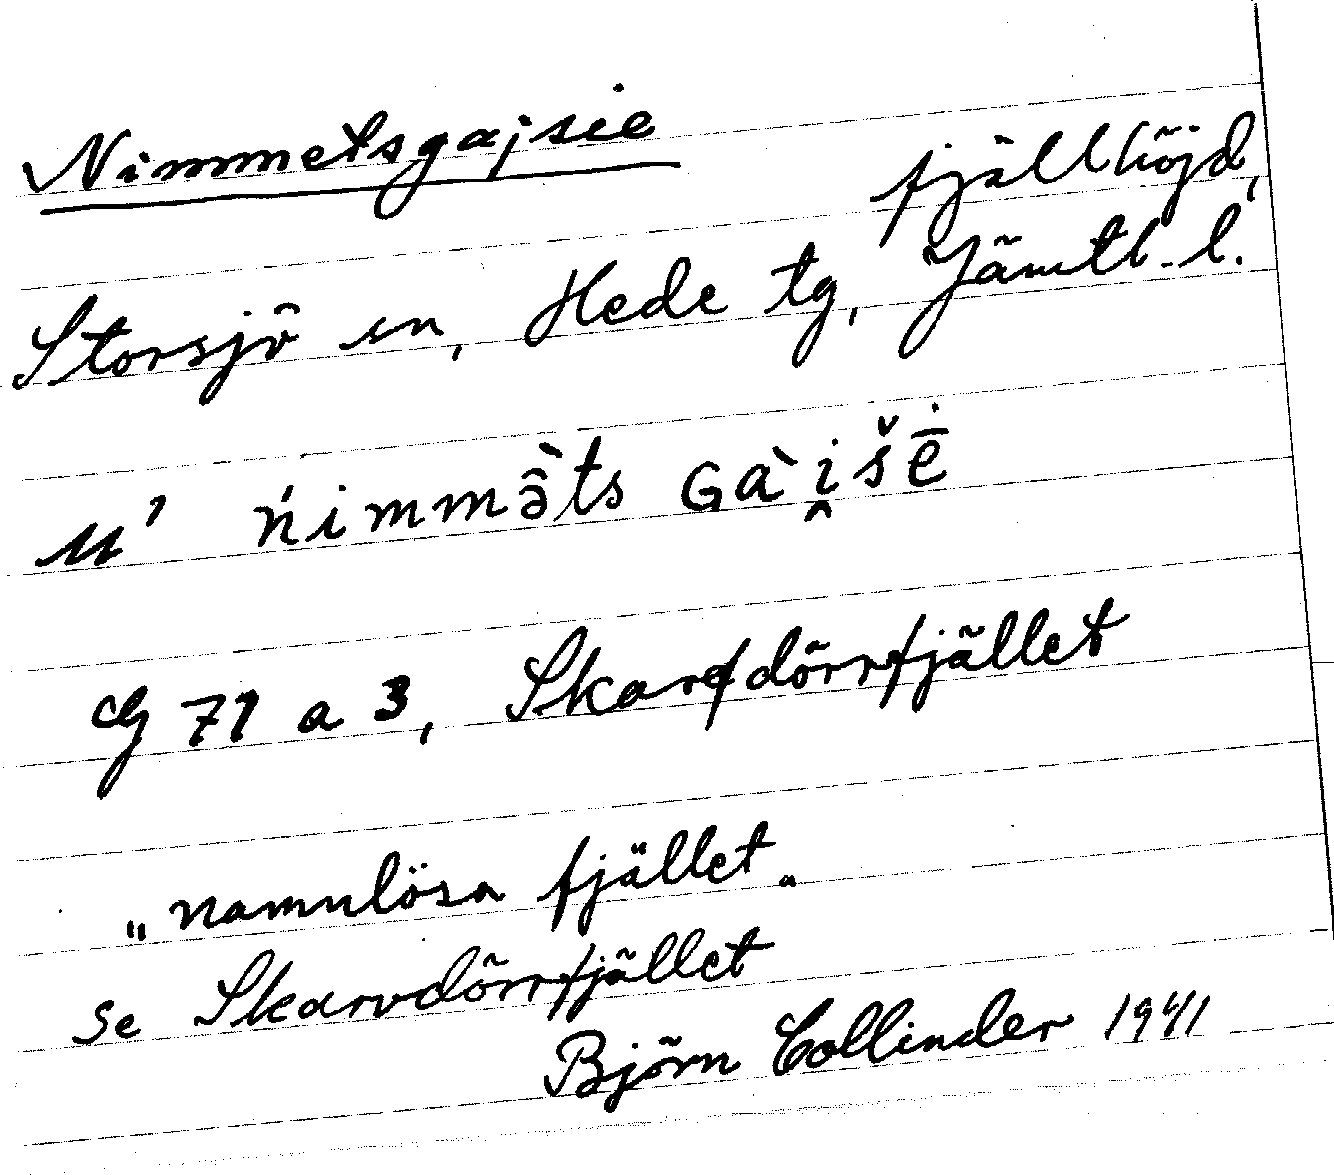 Nimmetsgajsie
fjällhöjd,
Storsjö sn, Hede tg, Jämtl. l.
ńimmə̂̀ts Gài̯šē̇
G 71 a 3, Skarfdörrfjället
„namnlösa fjället„
se Skarvdörrfjället
Björn Collinder 1941